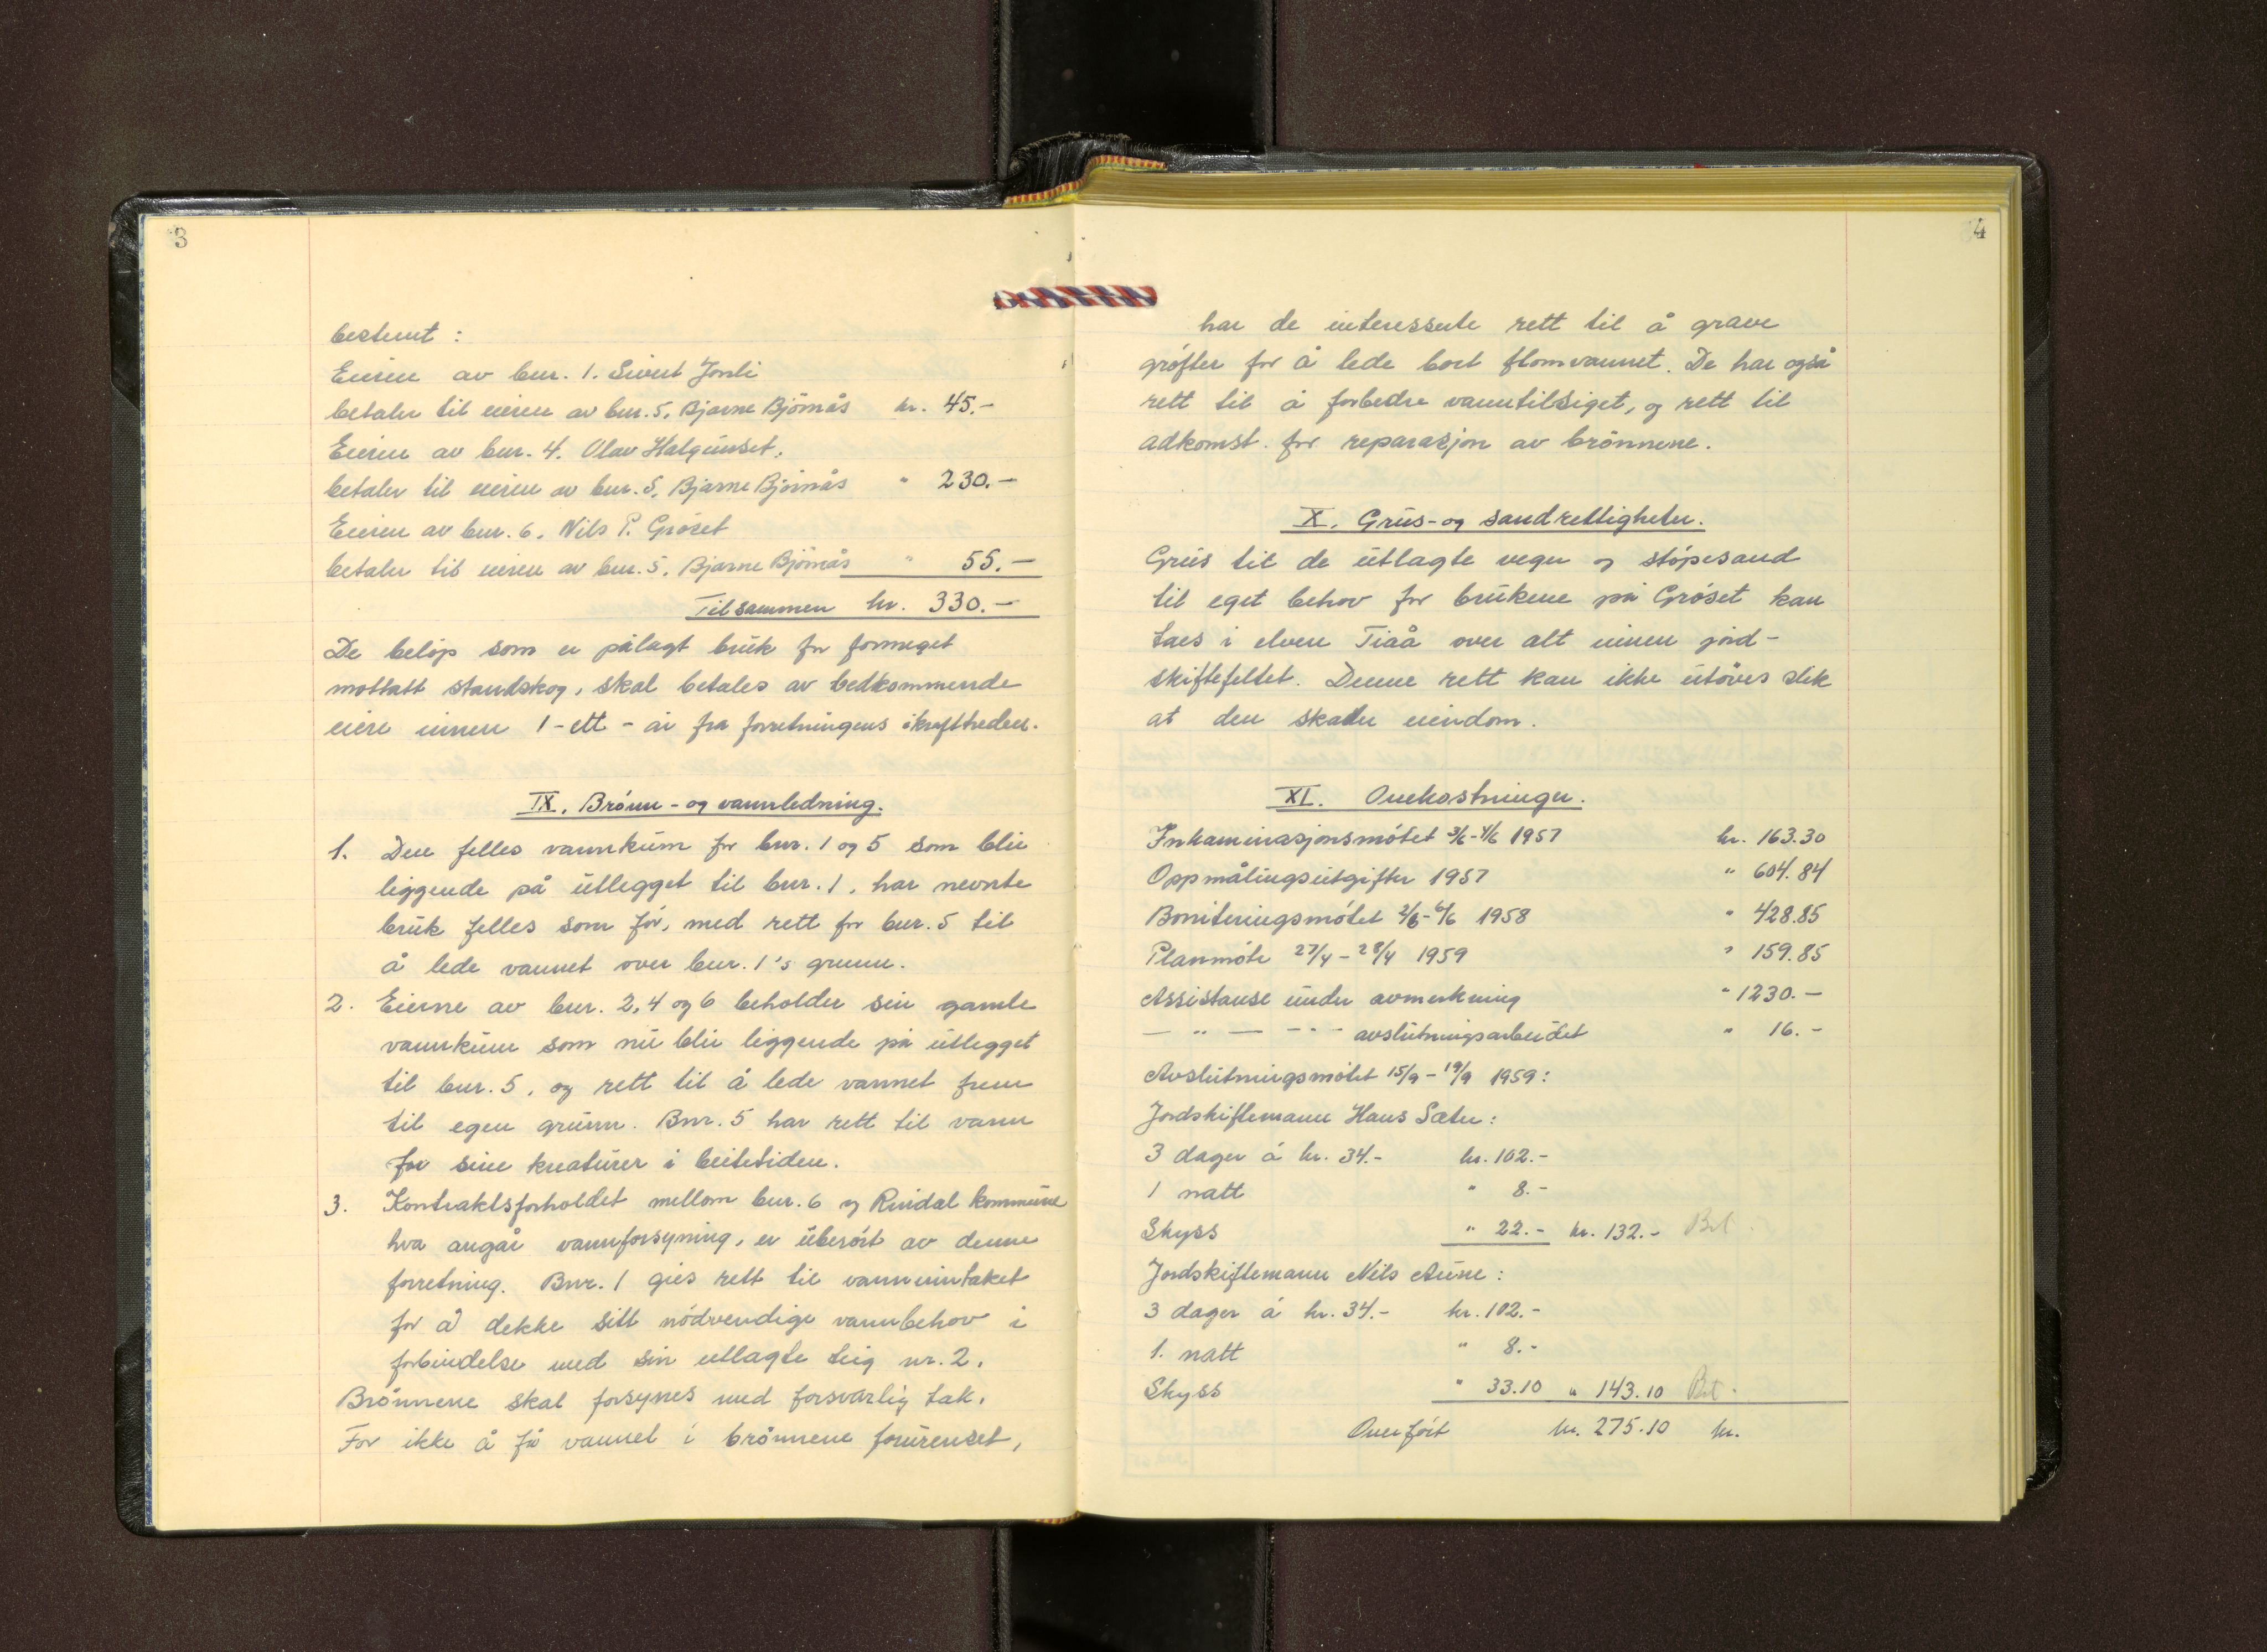 3
bestemt:
Eieren av bnr. 1. Sivert Jonli
betaler til eieren av bnr. 5, Bjarne Bjørnås kr. 45.-
Eieren av bnr. 4. Olav Halgunset,
betaler til eieren av bnr. 5, Bjarne Bjørnås " 230.-
Eieren av bnr. 6. Nils P. Grøset
betaler til eieren av bnr. 5, Bjarne Bjørnås " 55.-
Tilsammen kr. 330.-
De beløp som er pålagt bruk for formeget
mottatt standskog, skal betales av vedkommende
eiere innen 1 - ett - år fra forretningens ikrafttreden.
IX. Brønn- og vannledning.
1. Den felles vannkum for bnr. 1 og 5 som blir
liggende på utlegget til bnr. 1, har nevnte
bruk felles som før, med rett for bnr. 5 til
å lede vannet over bnr. 1's grunn.
2. Eierne av bnr. 2, 4 og 6 beholder sin gamle
vannkum som nu blir liggende på utlegget
til bnr. 5, og rett til å lede vannet frem
til egen grunn. Bnr. 5 har rett til vann
for sine kreaturer i beitetiden.
3. Kontraktsforholdet mellom bnr. 6 og Rindal kommune
hva angår vannforsyning, er uberørt av denne
forretning. Bnr. 1 gies rett til vanninntaket
for å dekke sitt nødvendige vannbehov i
forbindelse med sin utlagte teig nr. 2.
Brønnene skal forsynes med forsvarlig tak.
For ikke å få vannet i brønnene forurenset,
4
har de interesserte rett til å grave
grøfter for å lede bort flomvannet. De har også
rett til å forbedre vanntilsiget, og rett til
adkomst for reparasjon av brønnene.
X. Grus- og sandrettigheter.
Grus til de utlagte veger og støpesand
til eget behov for brukene på Grøset kan
taes i elven Tiåa over alt innen jord-
skiftefeltet. Denne rett kan ikke utøves slik
at den skader eiendom.
XI. Omkostninger.
Inkaminasjonsmøtet 3/6-4/6 1957 kr. 163.30
Oppmålingsutgifter 1957 " 604.84
Boniteringsmøtet 2/6-6/6 1958 " 428.85
Planmøte 27/4-28/4 1959 " 159.85
Assistanse under avmerkning " 1230.-
— " — - " - avslutningsarbeidet " 16.-
Avslutningsmøtet 15/9-19/9 1959:
Jordskiftemann Hans Sæter:
3 dager á kr. 34.- kr. 102.-
1 natt " 8.-
Skyss " 22.- kr. 132.- Bet.
Jordskiftemann Nils Aune:
3 dager á kr. 34.- kr. 102.-
1. natt " 8.-
Skyss " 33.10 " 143.10 Bet.
Overført kr. 275.10 kr.